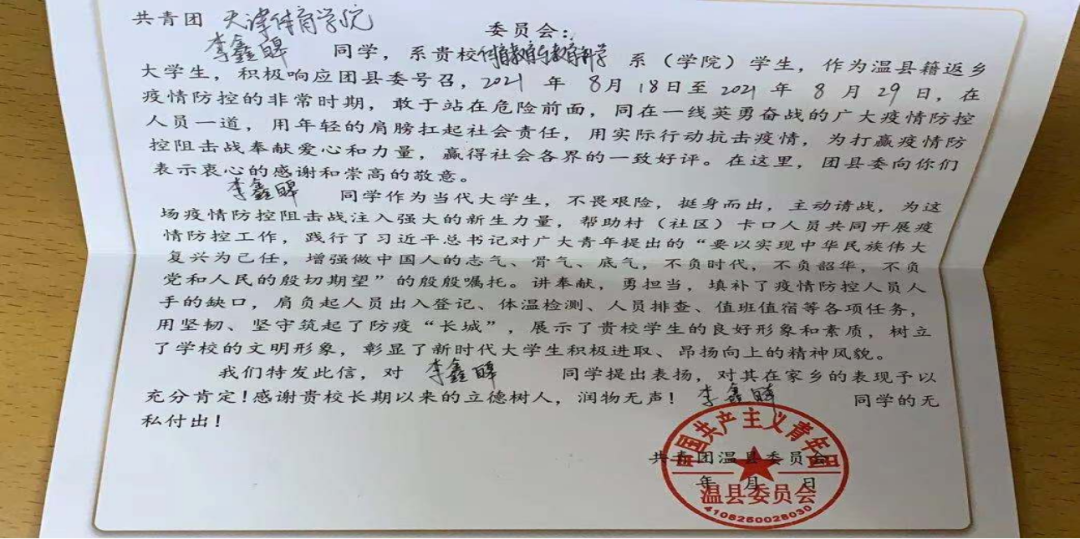 共青团 天津体育学院 委员会：
李鑫 同学，系贵校体育教育与教育科学 系（学院）学生，作为温县籍返乡
大学生，积极响应团县委号召，2021 年 8月18日至2021 年 8 月 29日，在
疫情防控的非常时期，敢于站在危险前面，同在一线英勇奋战的广大疫情防控
人员一道，用年轻的肩膀扛起社会责任，用实际行动抗击疫情，为打赢疫情防
控阻击战奉献爱心和力量，赢得社会各界的一致好评。在这里，团县委向你们
表示衷心的感谢和崇高的敬意。
李鑫 同学作为当代大学生，不畏艰险，挺身而出，主动请战，为这
场疫情防控阻击战注入强大的新生力量，帮助村（社区）卡口人员共同开展疫
情防控工作，践行了习近平总书记对广大青年提出的“要以实现中华民族伟大
复兴为己任，增强做中国人的志气、骨气、底气，不负时代，不负韶华，不负
党和人民的殷切期望”的殷殷嘱托。讲奉献，勇担当，填补了疫情防控人员人
手的缺口，肩负起人员出入登记、体温检测、人员排查、值班值宿等各项任务，
用坚韧、坚守筑起了防疫“长城”，展示了贵校学生的良好形象和素质，树立
了学校的文明形象，彰显了新时代大学生积极进取、昂扬向上的精神风貌。
我们特发此信，对 李鑫 同学提出表扬，对其在家乡的表现予以
充分肯定！感谢贵校长期以来的立德树人，润物无声！李鑫 同学的无
私付出！
中国共产主义青年团
共青团温县委员会
年 月 日
温县委员会
4108260028030